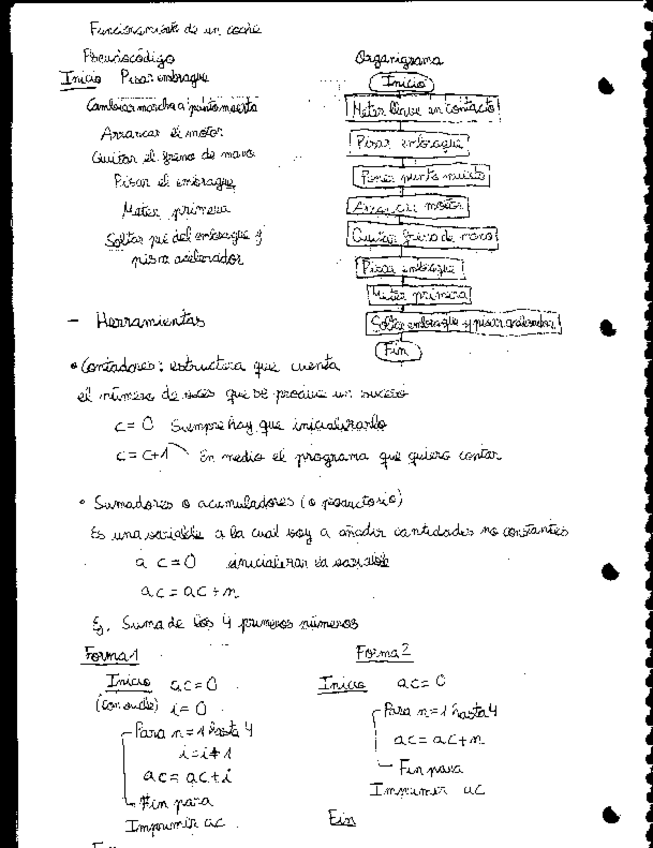 Funcionamiento de un coche
Pseudocódigo
Inicio Pisar embrague
Cambiar marcha a punto muerto
Arrancar el motor
Quitar el freno de mano
Pisar el embrague
Meter primera
Soltar pie del embrague y
pisar acelerador
Organigrama
Inicio
Meter llave en contacto
Pisar embrague
Poner punto muerto
Arrancar motor
Quitar freno de mano
Pisar embrague
Meter primera
Soltar embrague y pisar acelerador
Fin
- Herramientas
• Contadores: estructura que cuenta
el número de veces que se produce un suceso
c = 0 Siempre hay que inicializarlo
c = c+1 En medio el programa que quiero contar
• Sumadores o acumuladores (o productorio)
Es una variable a la cual voy a añadir cantidades no constantes
ac = 0 inicializar la variable
ac = ac + n
Ej. Suma de los 4 primeros números
Forma 1
Inicio ac = 0
i = 0
Para n = 1 hasta 4
i = i + 1
ac = ac + i
Fin para
Imprimir ac
Forma 2
Inicio ac = 0
Para n = 1 hasta 4
ac = ac + n
Fin para
Imprimir ac
Fin